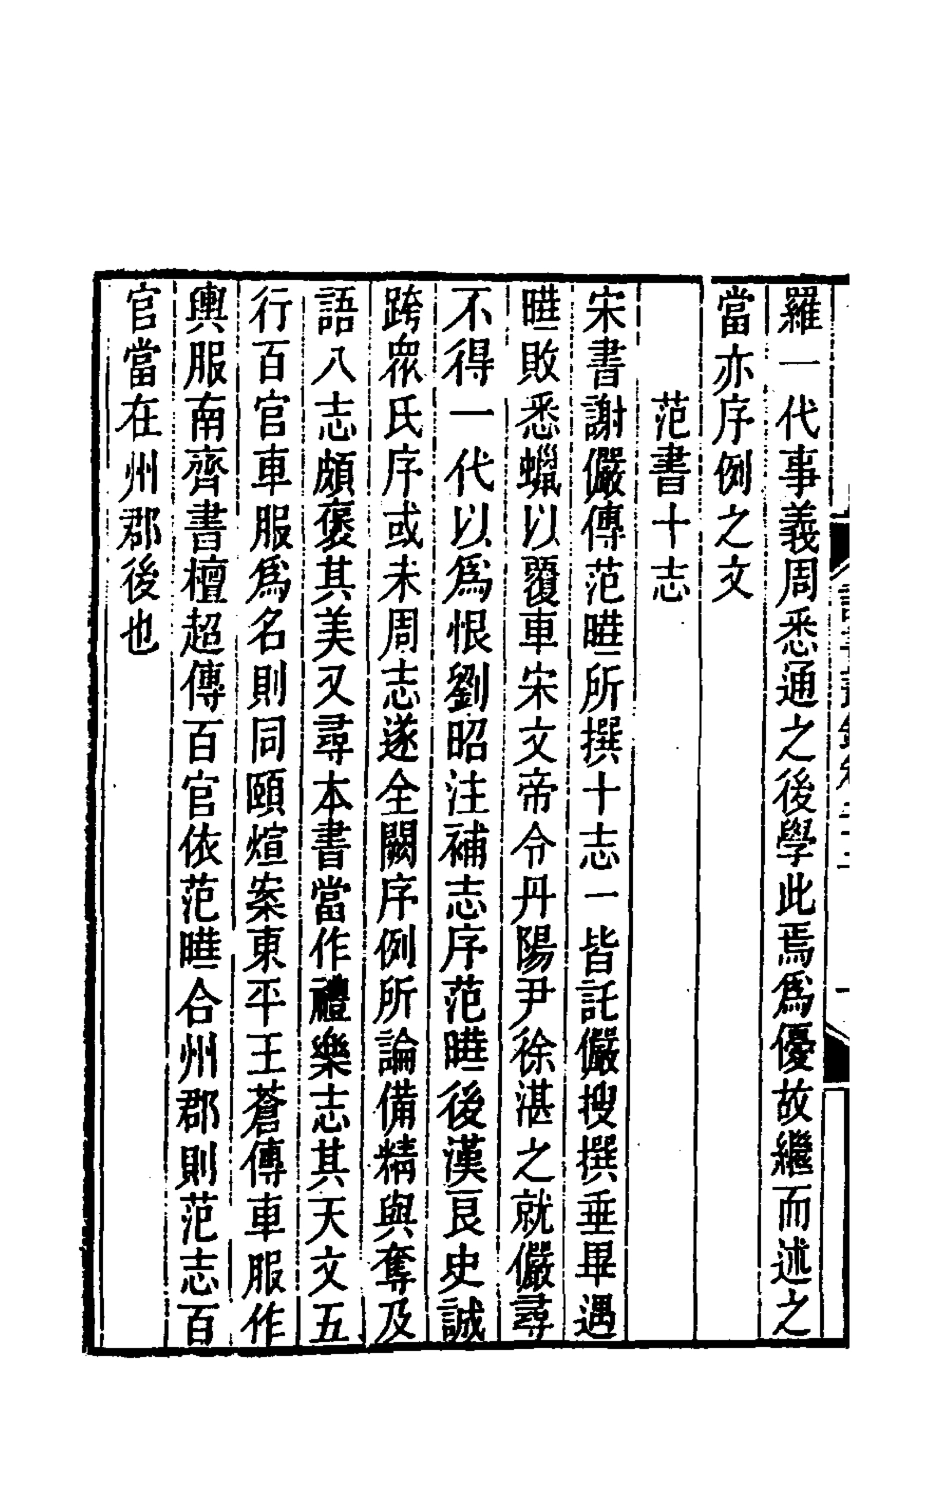 羅一代事義周悉通之後學此焉爲優故繼而述之
當亦序例之文
范書十志
宋書謝儼傳范曄所撰十志一皆託儼搜撰垂畢遇
曄敗悉蠟以覆車宋文帝令丹陽尹徐湛之就儼尋
不得一代以爲恨劉昭注補志序范曄後漢良史誠
跨眾氏序或未周志遂全闕序例所論備精與奪及
語八志頗褒其美又尋本書當作禮樂志其天文五
行百官車服爲名則同頤煊案東平王蒼傳車服作
輿服南齊書檀超傳百官依范曄合州郡則范志百
官當在州郡後也